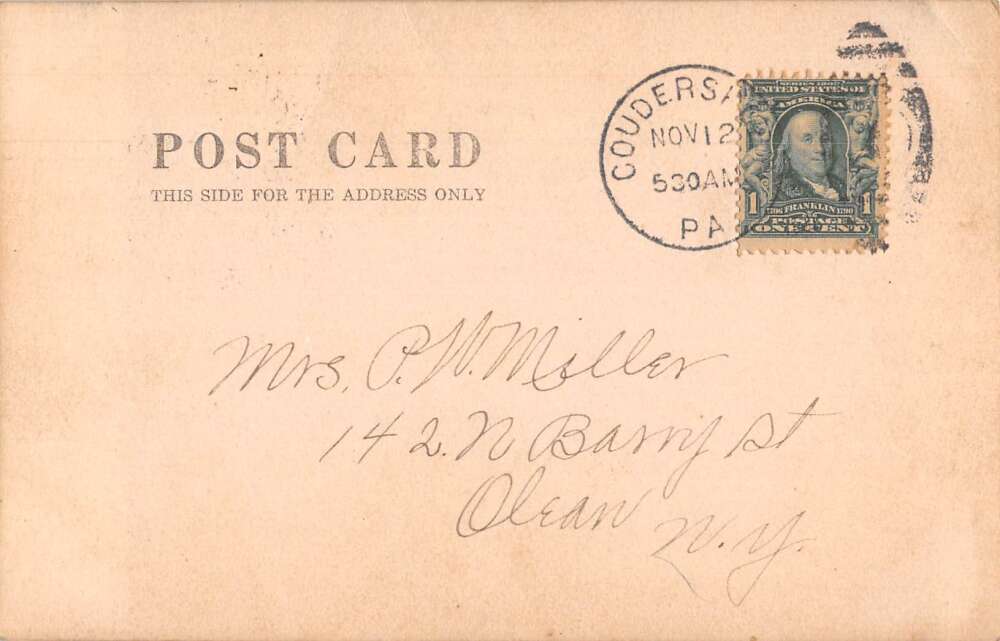 POST CARD
THIS SIDE FOR THE ADDRESS ONLY
COUDERS
NOV 12
530 AM
PA
SERIES 1902
UNITED STATES OF
AMERICA
1 1
1706 FRANKLIN 1790
POSTAGE
ONE CENT
Mrs. P. W. Miller
142. N Barry St
Olean N.Y.